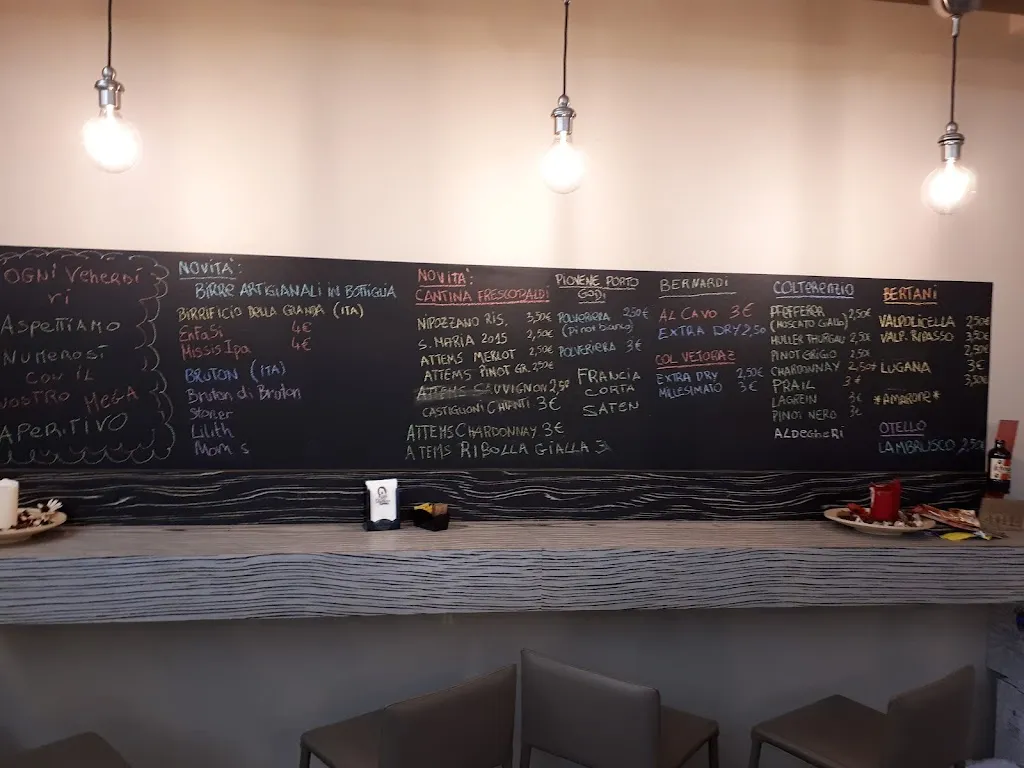 OGNI VENERDI
VI
ASPETTIAMO
NUMEROSI
CON IL
NOSTRO MEGA
APERITIVO
NOVITA':
BIRRE ARTIGIANALI IN BOTTIGLIA
BIRRIFICIO DELLA GRANDA (ITA)
EnFaSi 4€
Missis Ipa 4€
BRUTON (ITA)
Bruton di Bruton
Stoner
Lilith
Mom s
NOVITA':
CANTINA FRESCOBALDI
NIPOZZANO RIS. 3,50€
S. MARIA 2015 2,50€
ATTEMS MERLOT 2,50€
ATTEMS PINOT GR. 2,50€
ATTEMS SAUVIGNON 2,50
CASTIGLIONI CHIANTI 3€
ATTEMS CHARDONNAY 3€
ATTEMS RIBOLLA GIALLA 3
PIOVENE PORTO
GODI
POLVERIERA 2,50€
(Pinot bianco)
POLVERIERA 3€
FRANCIA
CORTA
SATEN
BERNARDI
AL CAVO 3€
EXTRA DRY 2,50
COL VETORAZ
EXTRA DRY 2,50€
MILLESIMATO 3€
COLTERENZIO
PFEFFERER 2,50€
(MOSCATO GIALLO)
MULLER THURGAU 2,50€
PINOT GRIGIO 2,50
CHARDONNAY 2,50€
PRAIL 3€
LAGREIN 3€
PINOT NERO 3€
ALDEGHERI
BERTANI
VALPOLICELLA 2,50€
VALP. RIPASSO 3,50€
2,50€
LUGANA 3€
3,50€
*AMARONE*
OTELLO
LAMBRUSCO 2,50€